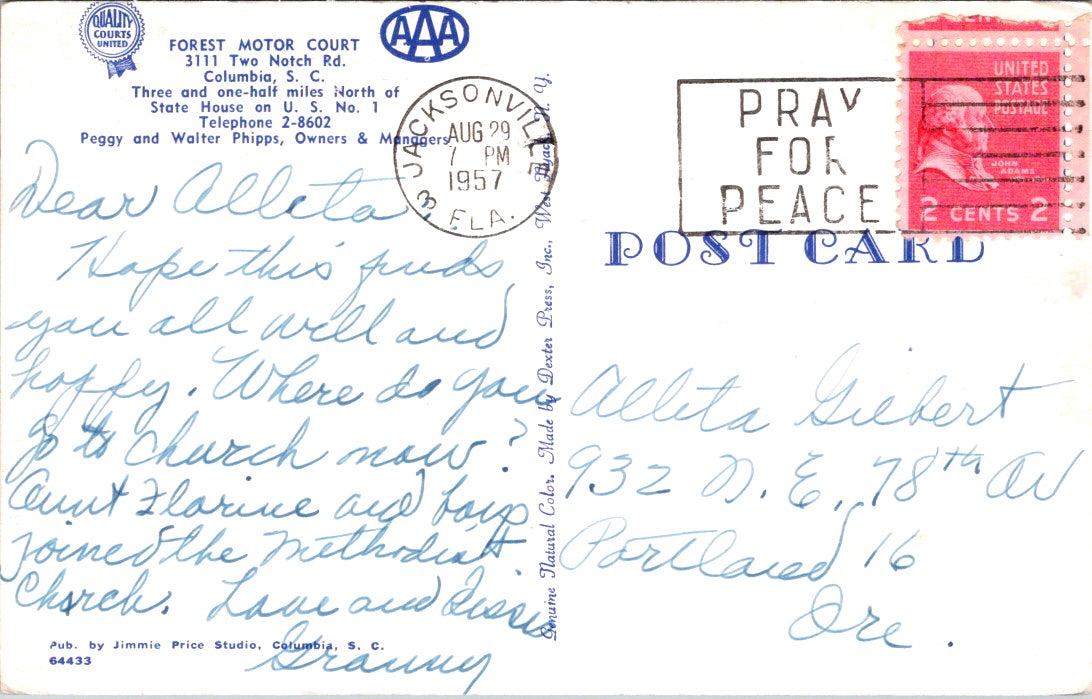 QUALITY
COURTS
UNITED
AAA
FOREST MOTOR COURT
3111 Two Notch Rd.
Columbia, S. C.
Three and one-half miles North of
State House on U. S. No. 1
Telephone 2-8602
Peggy and Walter Phipps, Owners & Managers
JACKSONVILLE
AUG 29
7 PM
1957
3 FLA.
PRAY
FOR
PEACE
UNITED
STATES
POSTAGE
JOHN
ADAMS
2 CENTS 2
POST CARD
Dear Alleta,
Hope this finds
you all well and
happy. Where do you
go to church now?
Aunt Florine and boys
joined the Methodist
Church. Love and Kisses
Granny
Genuine Natural Color. Made by Dexter Press, Inc., West Nyack, N. Y.
Alleta Giebert
932 N. E. 78th Av
Portland 16
Ore.
Pub. by Jimmie Price Studio, Columbia, S. C.
64433